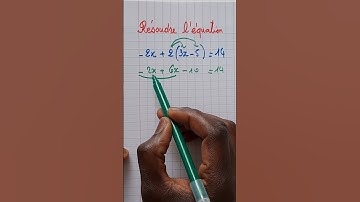 Résoudre l'équation
-2x + 2(3x - 5) = 14
-2x + 6x - 10 = 14